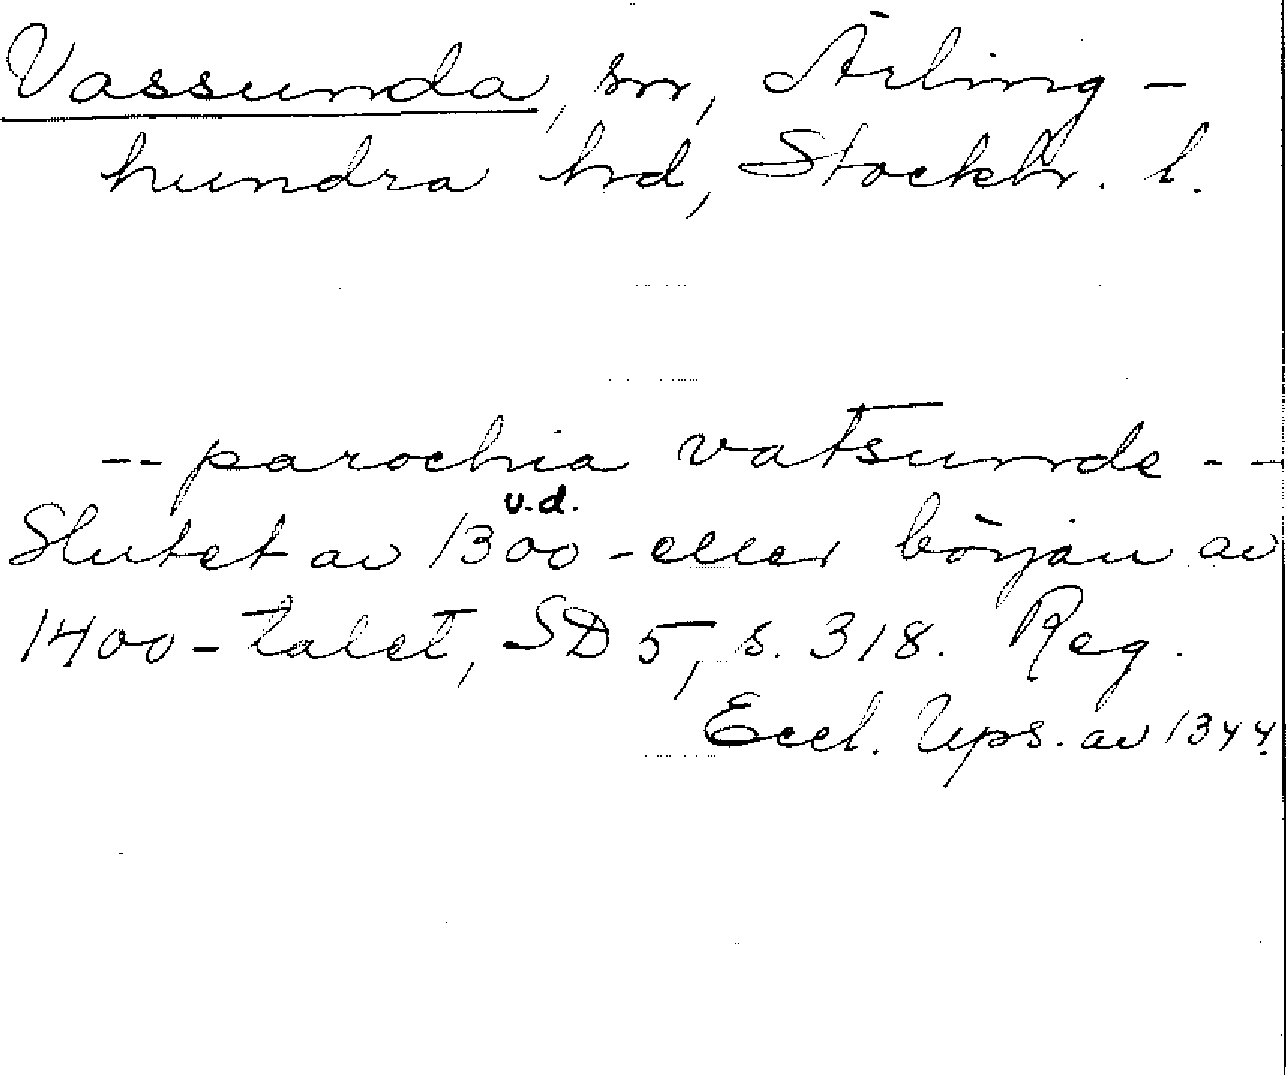 Vassunda, sn, Ärling-
hundra hd, Stockh. l.
-- parochia vatsunde --
u.d.
Slutet av 1300 - eller början av
1400-talet, SD 5, s. 318. Reg.
Eccl. Ups. av 1344.